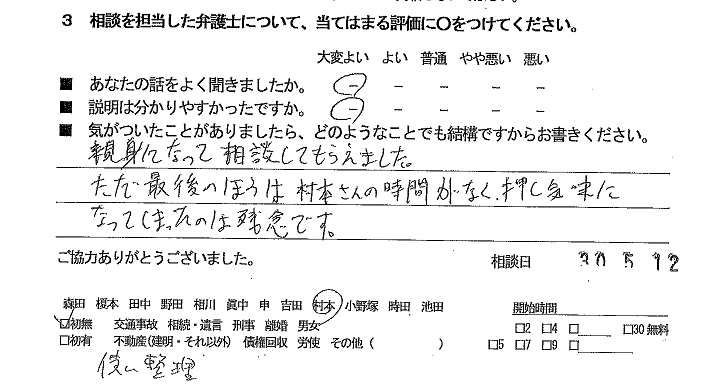 3 相談を担当した弁護士について、当てはまる評価に〇をつけてください。
大変よい よい 普通 やや悪い 悪い
■ あなたの話をよく聞きましたか。 － － － － －
■ 説明は分かりやすかったですか。 － － － － －
■ 気がついたことがありましたら、どのようなことでも結構ですからお書きください。
親身になって相談してもらえました。
ただ最後のほうは村本さんの時間がなく、押し気味に
なってしまったのは残念です。
ご協力ありがとうございました。 相談日 30 5 12
森田 榎本 田中 野田 相川 眞中 申 吉田 村本 小野塚 時田 池田 開始時間
□初無 交通事故 相続・遺言 刑事 離婚 男女 □2 □4 □ □30無料
□初有 不動産(建明・それ以外) 債権回収 労使 その他( ) □5 □7 □9 □
債ム整理